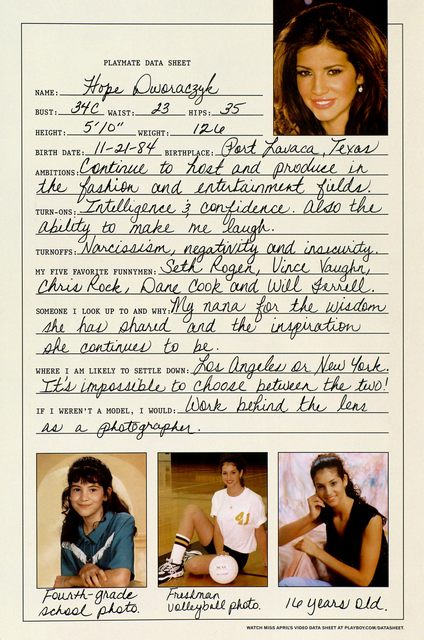 PLAYMATE DATA SHEET
NAME: Hope Dworaczyk
BUST: 34C WAIST: 23 HIPS: 35
HEIGHT: 5'10" WEIGHT: 126
BIRTH DATE: 11-21-84 BIRTHPLACE: Port Lavaca, Texas
AMBITIONS: Continue to host and produce in
the fashion and entertainment fields.
TURN-ONS: Intelligence & confidence. Also the
ability to make me laugh.
TURNOFFS: Narcissism, negativity and insecurity.
MY FIVE FAVORITE FUNNYMEN: Seth Rogen, Vince Vaughn,
Chris Rock, Dane Cook and Will Ferrell.
SOMEONE I LOOK UP TO AND WHY: My nana for the wisdom
she has shared and the inspiration
she continues to be.
WHERE I AM LIKELY TO SETTLE DOWN: Los Angeles or New York.
It's impossible to choose between the two!
IF I WEREN'T A MODEL, I WOULD: Work behind the lens
as a photographer.
41
Fourth-grade
school photo.
Freshman
volleyball photo.
16 years old.
WATCH MISS APRIL'S VIDEO DATA SHEET AT PLAYBOY.COM/DATASHEET.